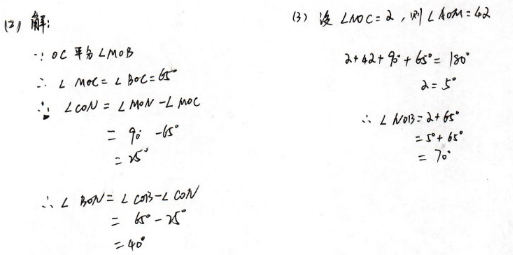 (2) 解:
∵ OC 平分 ∠MOB
∴ ∠MOC = ∠BOC = 65°
∴ ∠CON = ∠MON - ∠MOC
= 90° - 65°
= 25°
∴ ∠BON = ∠COB - ∠CON
= 65° - 25°
= 40°
(3) 设 ∠NOC = α, 则 ∠AOM = 4α
α + 4α + 90° + 65° = 180°
α = 5°
∴ ∠NOB = α + 65°
= 5° + 65°
= 70°